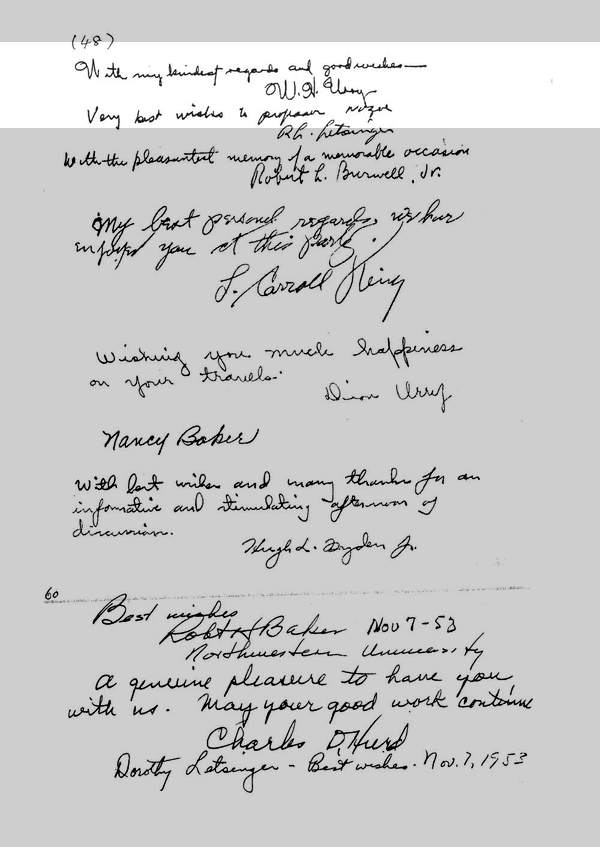 (48)
With my kindest regards and good wishes—
W.H. Urry
Very best wishes to professor Nozoe
R.L. Letsinger
With the pleasantest memory of a memorable occasion
Robert L. Burwell, Jr.
My best personal regards, we have
enjoyed you at this party.
L. Carroll King
Wishing you much happiness
on your travels.
Urry
Nancy Baker
With best wishes and many thanks for an
informative and stimulating afternoon of
discussion.
Hugh L. Dryden Jr.
60
Best wishes
Robt H Baker Nov 7-53
Northwestern University
A genuine pleasure to have you
with us. May your good work continue
Charles D. Hurd
Dorothy Letsinger - Best wishes. Nov. 7, 1953